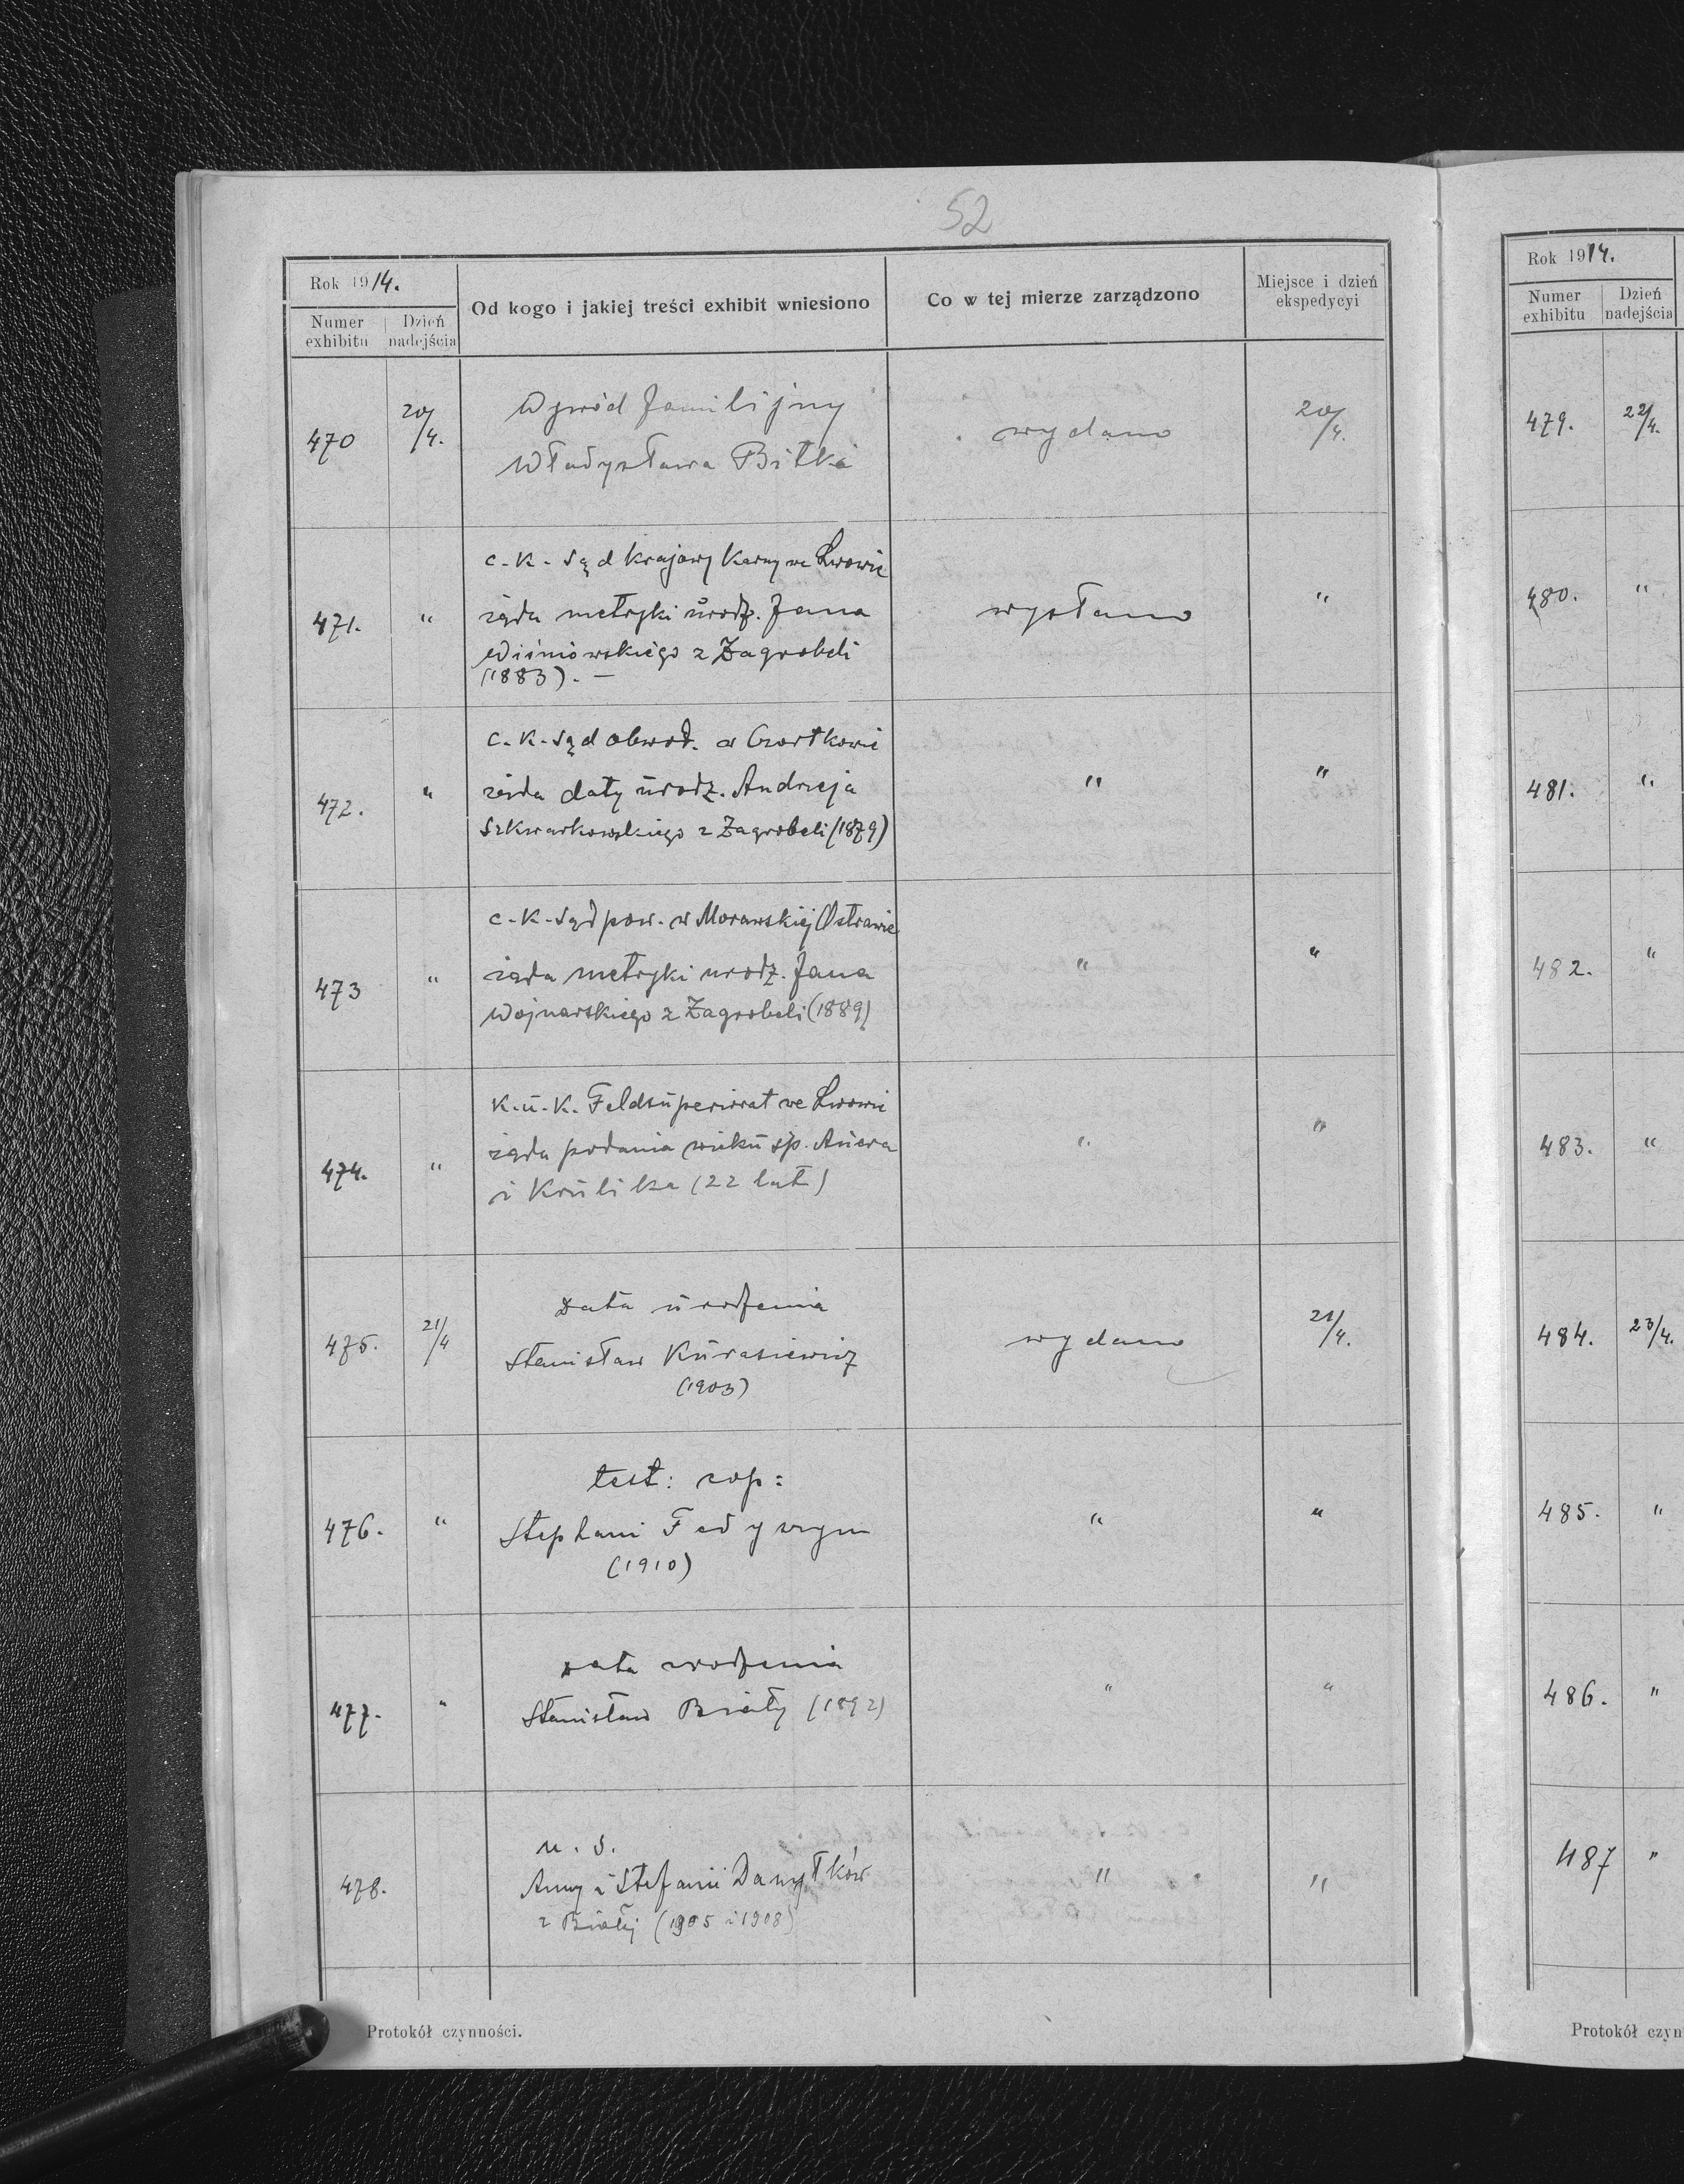 52
Rok 1914.
Numer exhibitu
Dzień nadejścia
Od kogo i jakiej treści exhibit wniesiono
Co w tej mierze zarządzono
Miejsce i dzień ekspedycyi
470
20/4.
Wywód familijny
Władysława Bitki
wydano
20/4.
471.
"
c. k. Sąd krajowy karny we Lwowie
żąda metryki urodz. Jana
Wiśniowskiego z Zagrobeli
(1883). —
wysłano
"
472.
"
c. k. Sąd obwod. w Czortkowie
żąda daty urodz. Andrzeja
Szkwarkowskiego z Zagrobeli (1879)
"
"
473
"
c. k. Sąd pow. w Morawskiej Ostrawie
żąda metryki urodz. Jana
Wojnarskiego z Zagrobeli (1889)
"
"
474.
"
K. u. K. Feldsuperiorat we Lwowie
żąda podania wieku śp.
i Królika (22 lat)
"
"
475.
21/4
Data urodzenia
Stanisław Kurasiewicz
(1903)
wydano
21/4.
476.
"
test: cop:
Stephani
(1910)
"
"
477.
"
Data urodzenia
Stanisław Biały (1892)
"
"
478.
n. s.
Anny i Stefanii Danyłków
z Białej (1905 i 1908)
"
"
Protokół czynności.
Rok 1914.
Numer exhibitu
Dzień nadejścia
479.
22/4.
480.
"
481.
"
482.
"
483.
"
484.
23/4.
485.
"
486.
"
487
"
Protokół czyn